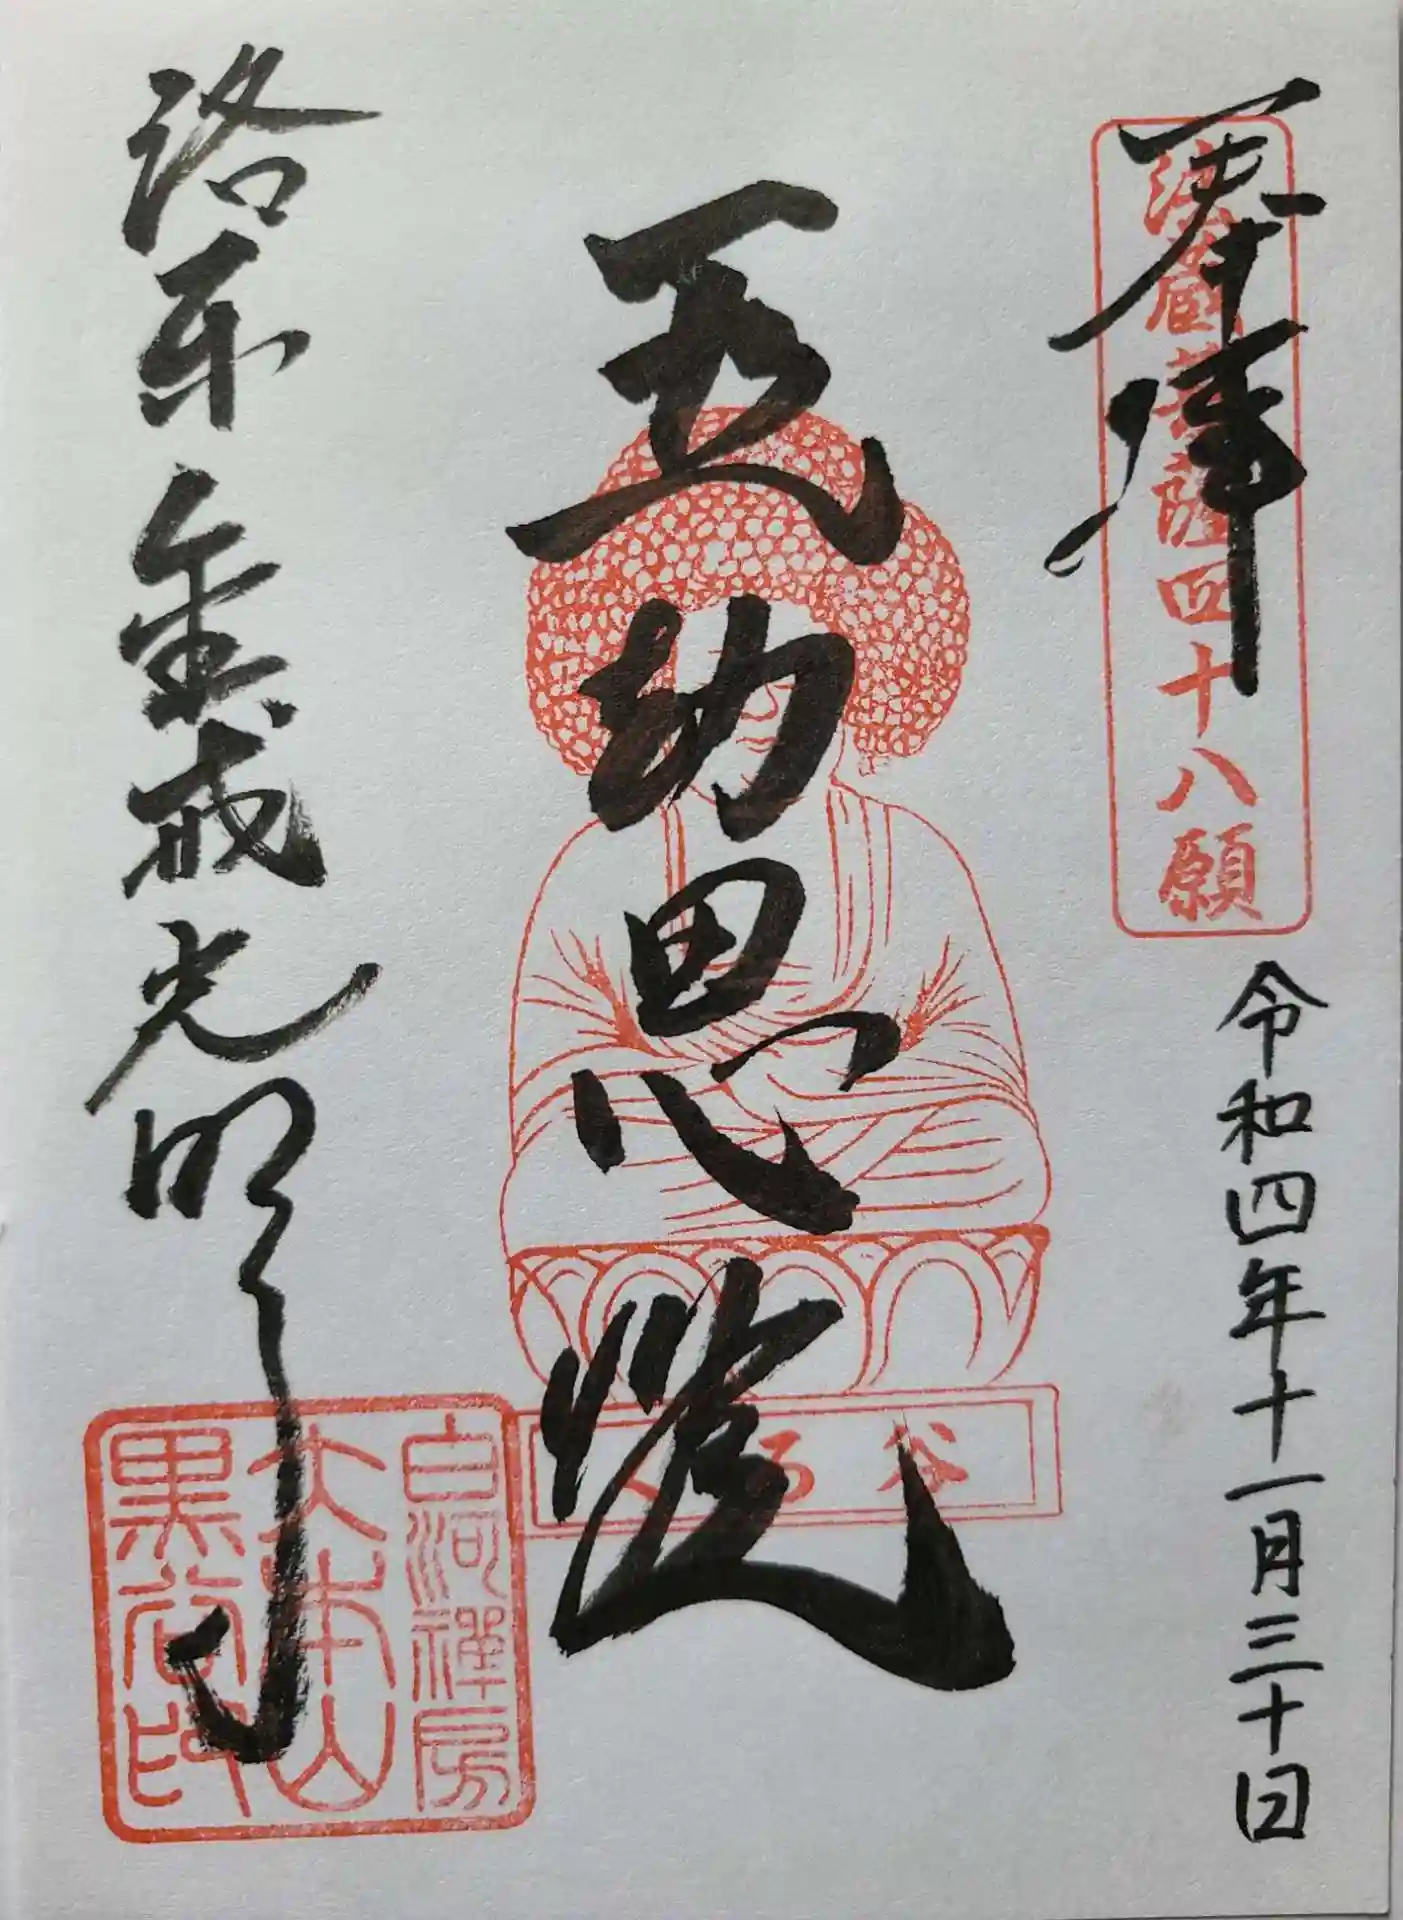 奉拝
法蔵菩薩四十八願
令和四年十一月三十日
五劫思惟
くろ谷
洛東 金戒光明寺
白河禅房
大本山
黒谷印